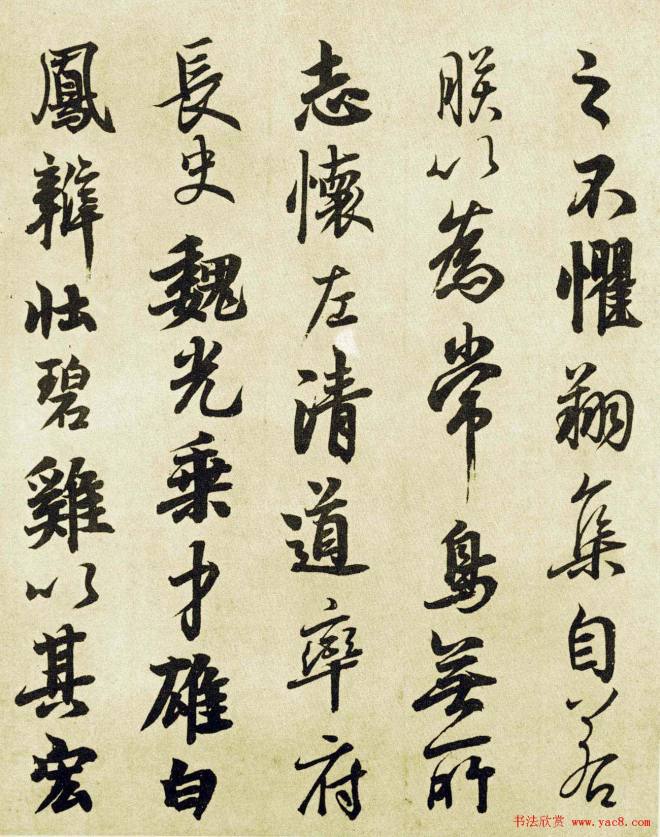 之不懼翔集自若
朕以為常鳥無所
志懷左清道率府
長史魏光乗才雄白
鳳辯壯碧雞以其宏
书法欣赏 www.yac8.com